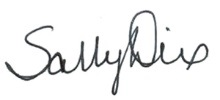 Sally Dix